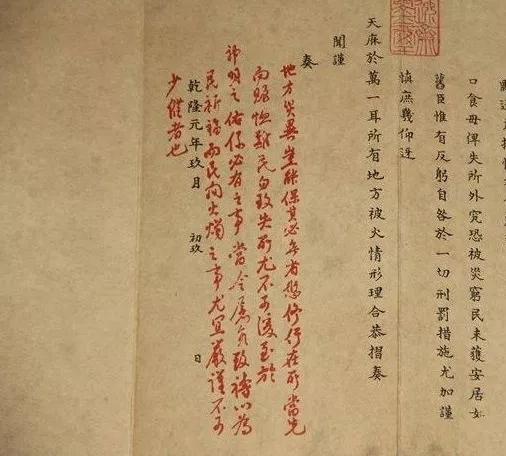 口食毋俾失所外究恐被災窮民未獲安居如
舊臣惟有反躬自咎於一切刑罰措施尤加謹
慎庶幾仰迓
天庥於萬一耳所有地方被火情形理合恭摺奏
聞謹
奏
地方災異豈能保其必無者修行在所當先
而賑恤難民勿致失所尤不可緩至於
神明之佑係必有之事當令屬員致禱以為
民祈福而民間火燭之事尤宜嚴謹不可
少懈者也
乾隆元年玖月 初玖 日